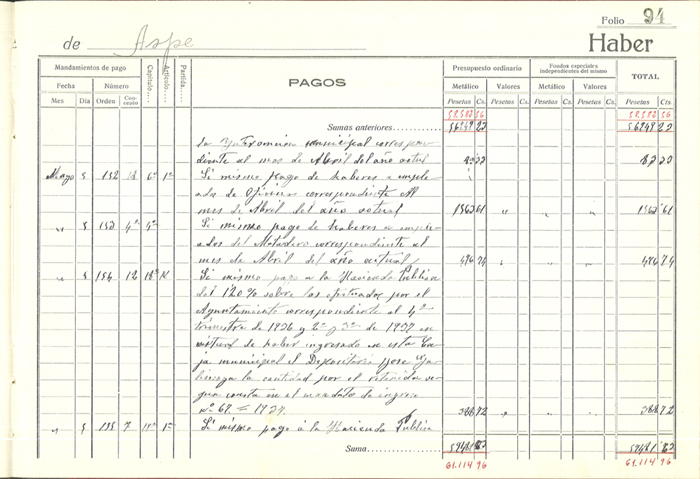 Folio 94
de Aspe
Haber
Mandamientos de pago
Capítulo....
Artículo....
Partida....
PAGOS
Presupuesto ordinario
Fondos especiales
independientes del mismo
TOTAL
Fecha
Número
Metálico
Valores
Metálico
Valores
Mes
Día
Orden
Con-
cepto
Pesetas Cs. Pesetas Cs. Pesetas Cs. Pesetas Cs. Pesetas Cts.
58582 56 58582 56
Sumas anteriores
56949 22 56949 22
municipal corres pon
diente al mes de Abril del año actual
Mayo 5 152 Id mismo pago de haberes a emplea
dos de Oficinas correspondiente al
mes de Abril del año actual 1562 61 " " " 1562 61
" 5 153 4º 4º Id mismo pago de haberes a emplea
dos del Matadero correspondiente al
mes de Abril del año actual 476 74 476 74
" 5 154 12 Id mismo pago a la Hacienda Pública
del 1'20% sobre los efectuados por el
Ayuntamiento correspondiente al 4º
trimestre de 1936 y 2º y 3º de 1937 en
de haber ingresado en esta Ca
ja municipal el Depositario Jose
la cantidad por el retenida se
gun consta en el mandato de ingreso
nº 67 = 1937. 388 72 " " " 388 72
" 5 155 7 Id mismo pago à la Hacienda Publica
Suma 59481 82 59481 82
61.114 96 61.114 96